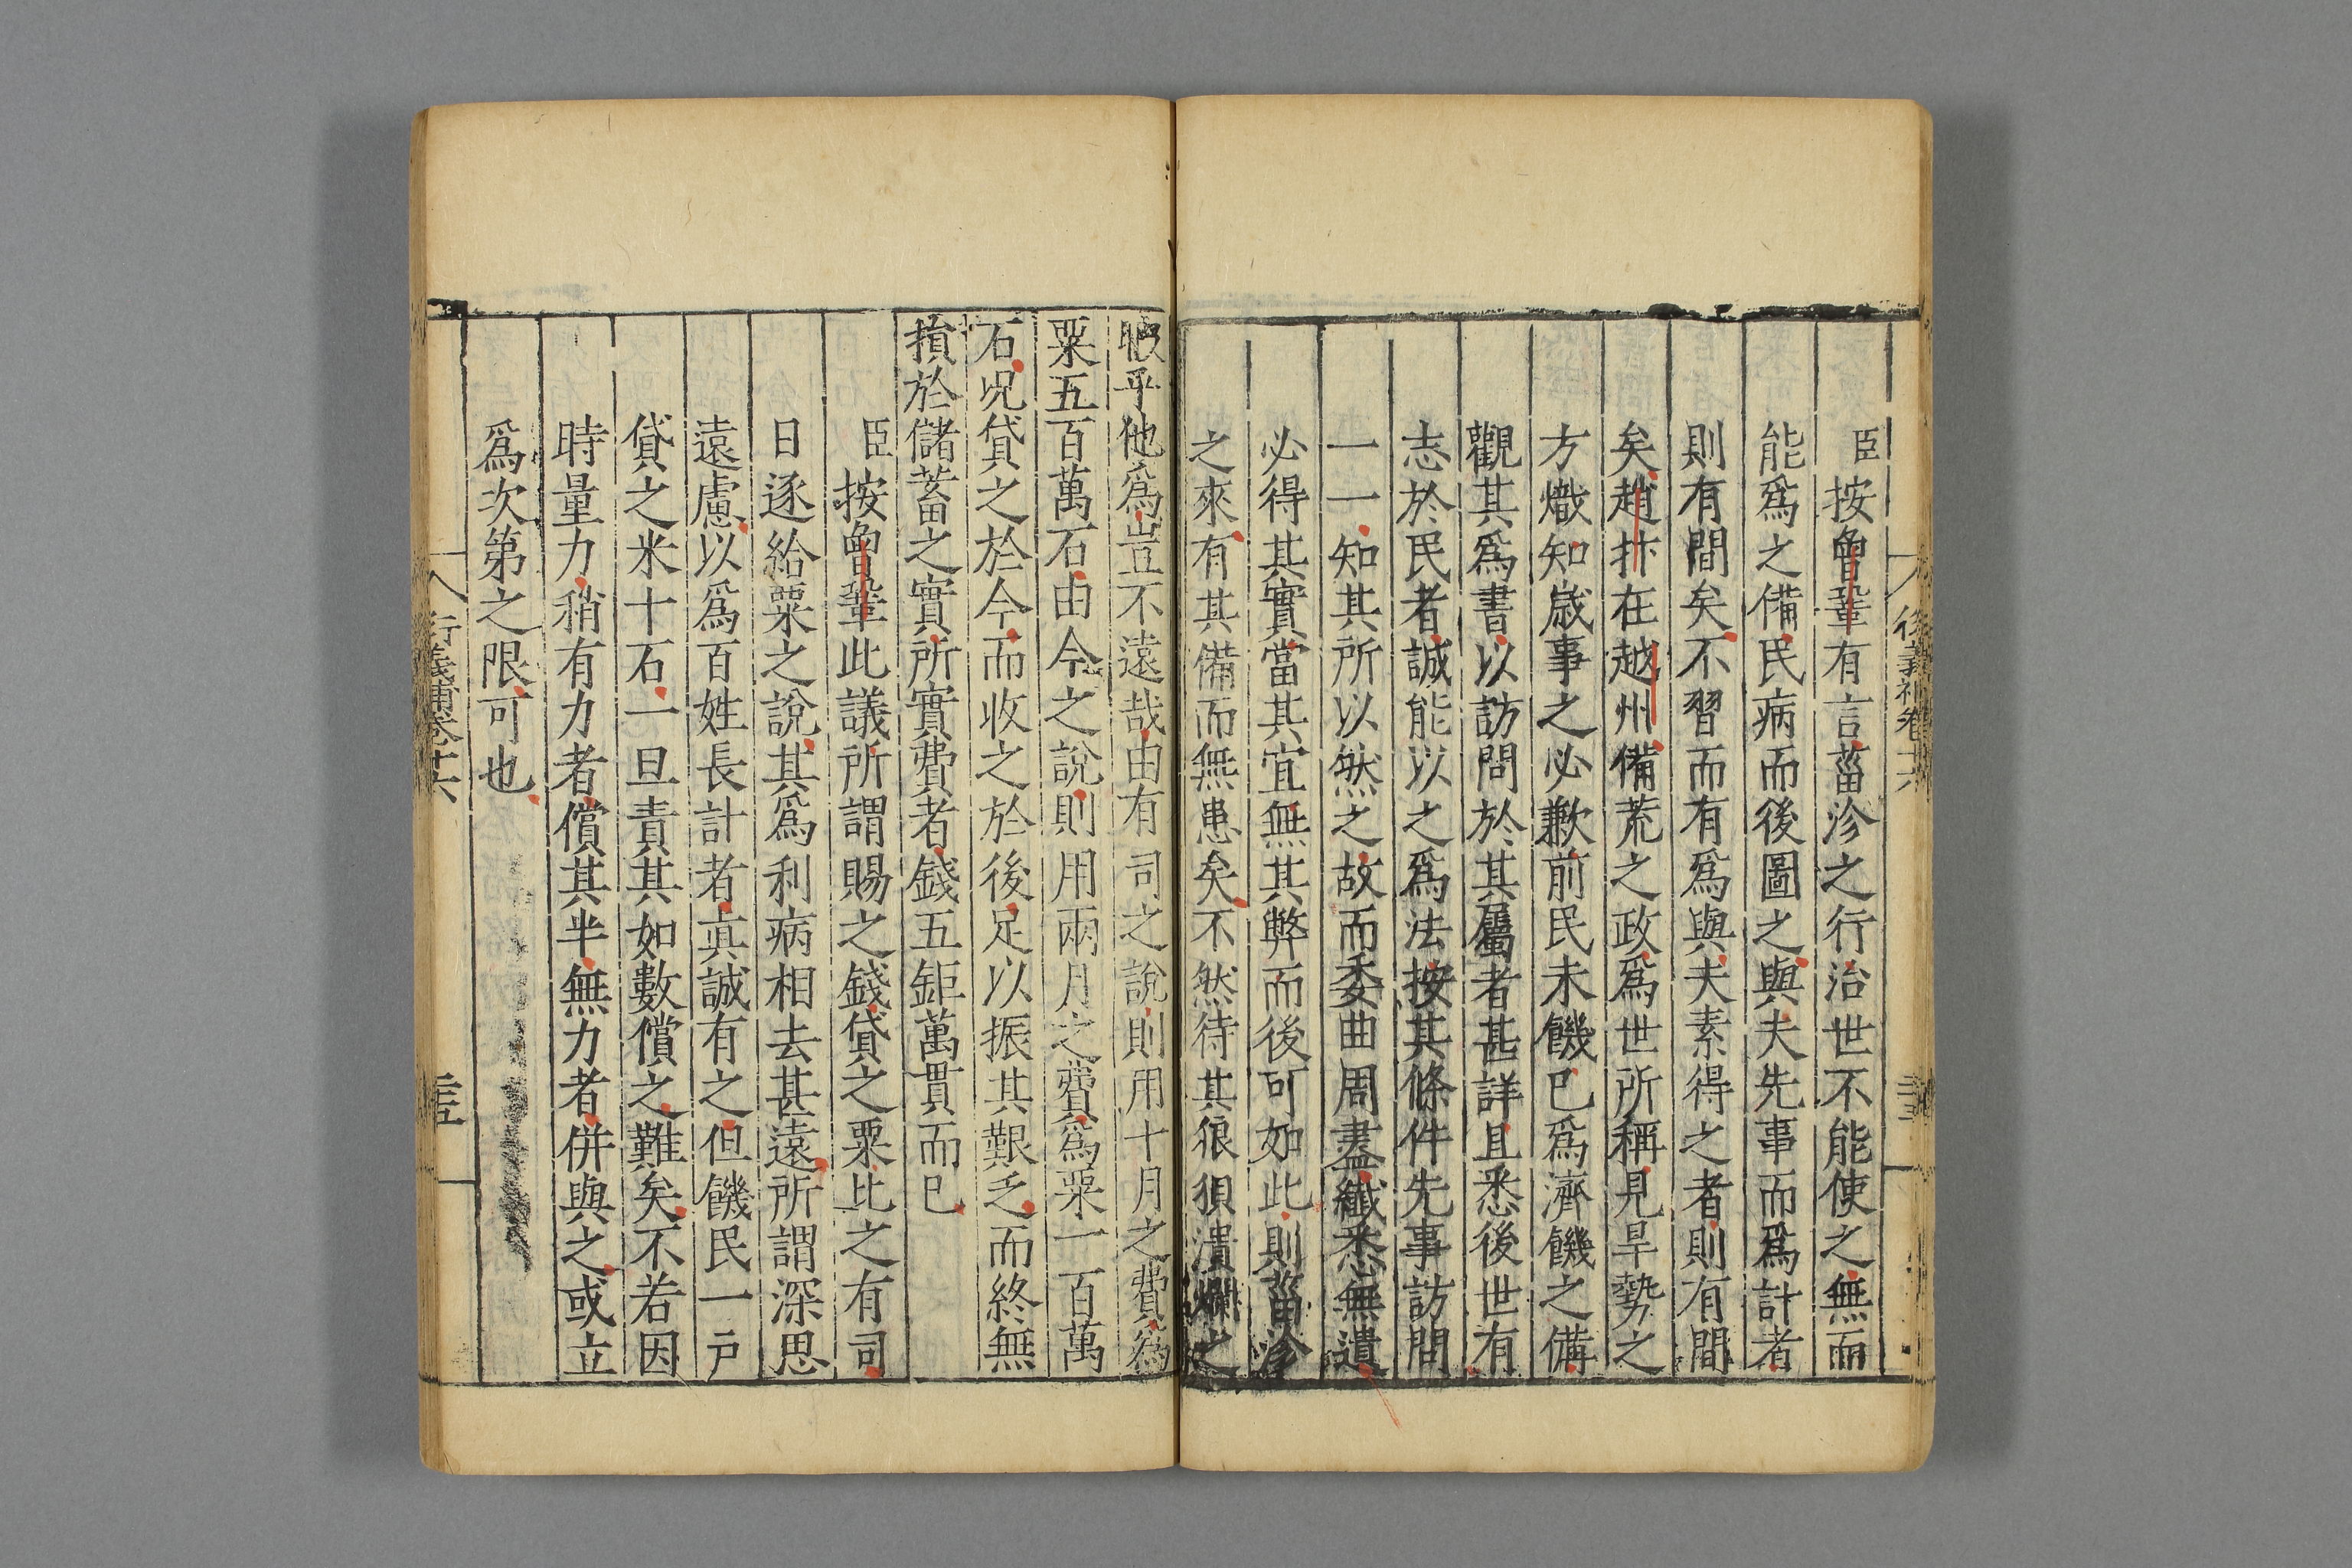 臣按曾鞏有言菑沴之行治世不能使之無而
能爲之備民病而後圖之與夫先事而爲計者
則有間矣不習而有爲與夫素得之者則有間
矣趙抃在越州備荒之政爲世所稱見旱勢之
方熾知歲事之必歉前民未饑已爲濟饑之備
觀其爲書以訪問於其屬者甚詳且悉後世有
志於民者誠能以之爲法按其條件先事訪問
一一知其所以然之故而委曲周盡纖悉無遺
必得其實當其宜無其弊而後可如此則菑沴
之來有其備而無患矣不然待其狼狽潰爛之
暇乎他爲豈不遠哉由有司之說則用十月之費爲
粟五百萬石由今之說則用兩月之費爲粟一百萬
石况貸之於今而收之於後足以振其艱乏而終無
損於儲蓄之實所實費者錢五鉅萬貫而已
臣按曾鞏此議所謂賜之錢貸之粟比之有司
日逐給粟之說其爲利病相去甚遠所謂深思
遠慮以爲百姓長計者真誠有之但饑民一戶
貸之米十石一旦責其如數償之難矣不若因
時量力稍有力者償其半無力者併與之或立
爲次第之限可也